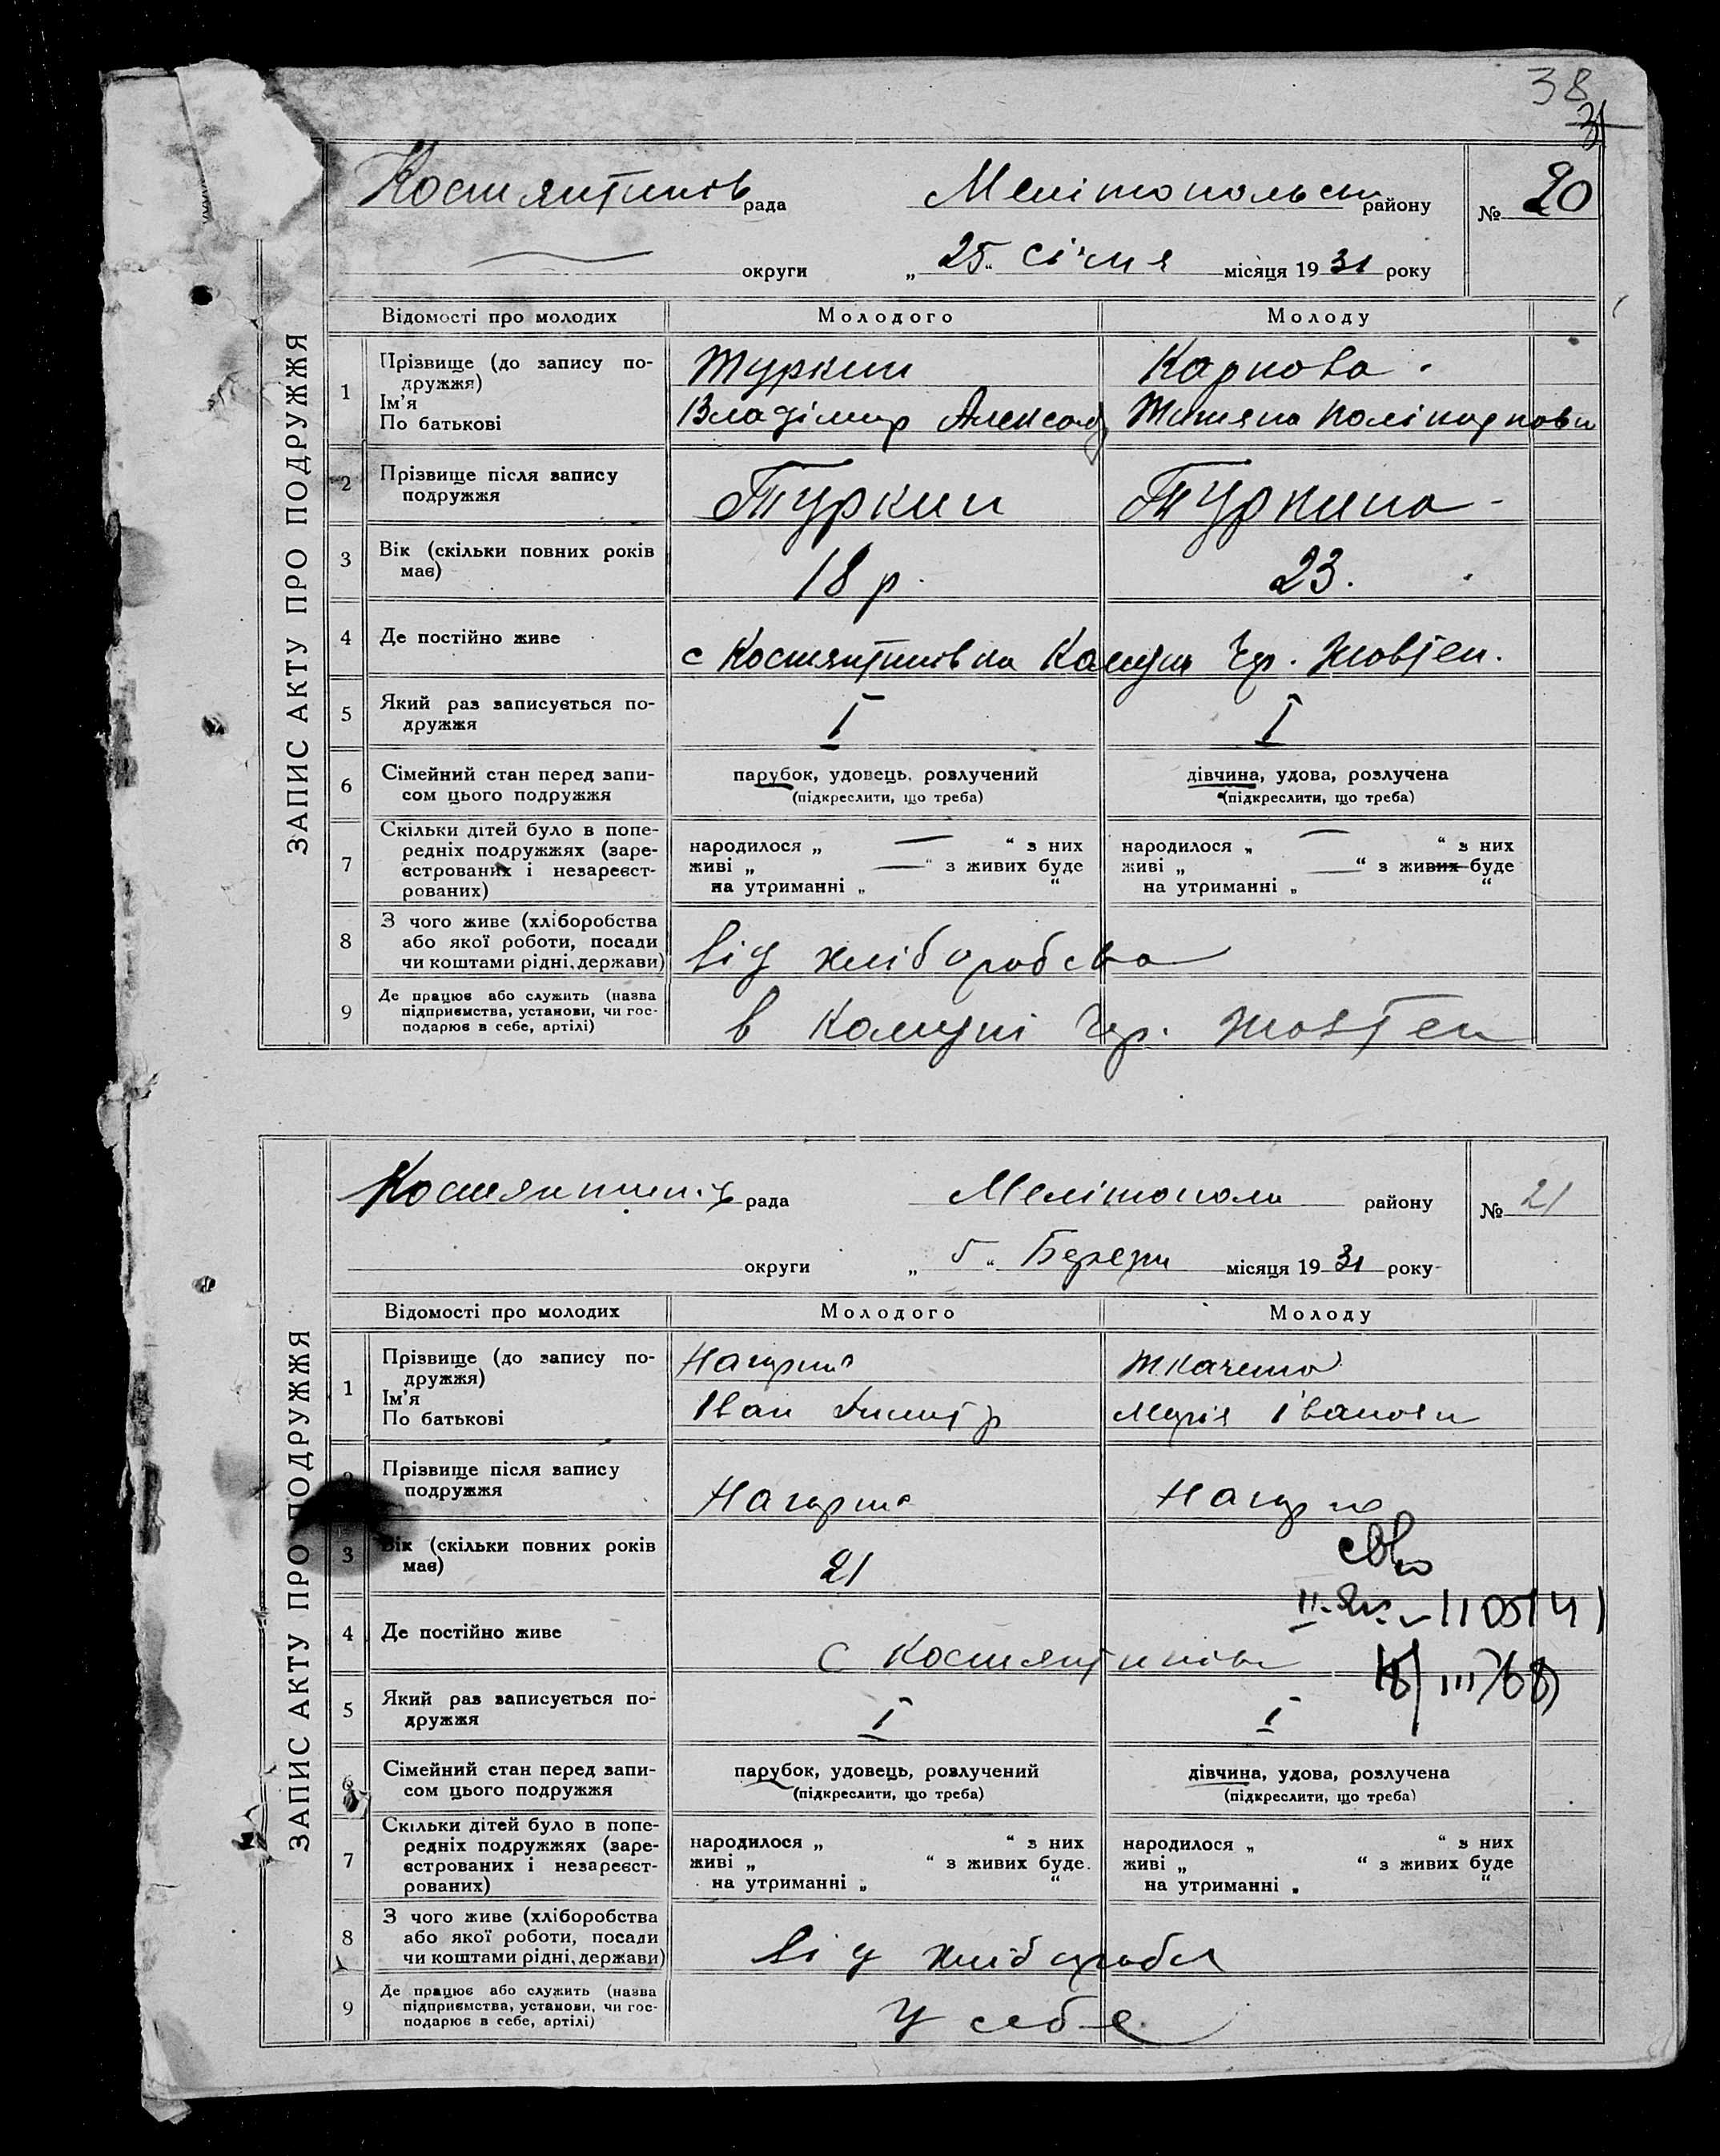 38
Костянтинів рада Мелітопольськ району № 20
округи „ 25 “ Січня місяця 19 31 року
ЗАПИС АКТУ ПРО ПОДРУЖЖЯ
Відомості про молодих Молодого Молоду
1 Прізвище (до запису по- Туркин Карпова
дружжя)
Ім'я Владімир Александ Титяна Полікарповн
По батькові
2 Прізвище після запису Туркин Туркина
подружжя
3 Вік (скільки повних років 18 р. 23.
має)
4 Де постійно живе с Костянтинівка Комуна Чер. Жовтен.
5 Який раз записується по- I I
дружжя
6 Сімейний стан перед запи- парубок, удовець, розлучений дівчина, удова, розлучена
сом цього подружжя (підкреслити, що треба) (підкреслити, що треба)
7 Скільки дітей було в попе-
редніх подружжях (заре- народилося „ — “ з них народилося „ — “ з них
єстрованих і незареєст- живі „ — “ з живих буде живі „ — “ з живих буде
рованих) на утриманні „ “ на утриманні „ “
8 З чого живе (хліборобства
або якої роботи, посади від хліборобства
чи коштами рідні, держави)
9 Де працює або служить (назва
підприємства, установи, чи гос- в Комуні Чер. Жовтен
подарює в себе, артілі)
Костянтинів рада Мелітополь району № 21
округи „ 5 “ Березн місяця 19 31 року
ЗАПИС АКТУ ПРО ПОДРУЖЖЯ
Відомості про молодих Молодого Молоду
1 Прізвище (до запису по- Нагорни
дружжя)
Ім'я Іван Дмитр Марія Івановн
По батькові
2 Прізвище після запису
подружжя Нагорни Нагорно
3 Вік (скільки повних років 21
має)
4 Де постійно живе с Костянтинівк
5 Який раз записується по- I I
дружжя
6 Сімейний стан перед запи- парубок, удовець, розлучений дівчина, удова, розлучена
сом цього подружжя (підкреслити, що треба) (підкреслити, що треба)
7 Скільки дітей було в попе-
редніх подружжях (заре- народилося „ “ з них народилося „ “ з них
єстрованих і незареєст- живі „ “ з живих буде живі „ “ з живих буде
рованих) на утриманні „ “ на утриманні „ “
8 З чого живе (хліборобства
або якої роботи, посади від хліборобс
чи коштами рідні, держави)
9 Де працює або служить (назва
підприємства, установи, чи гос- у себе
подарює в себе, артілі)